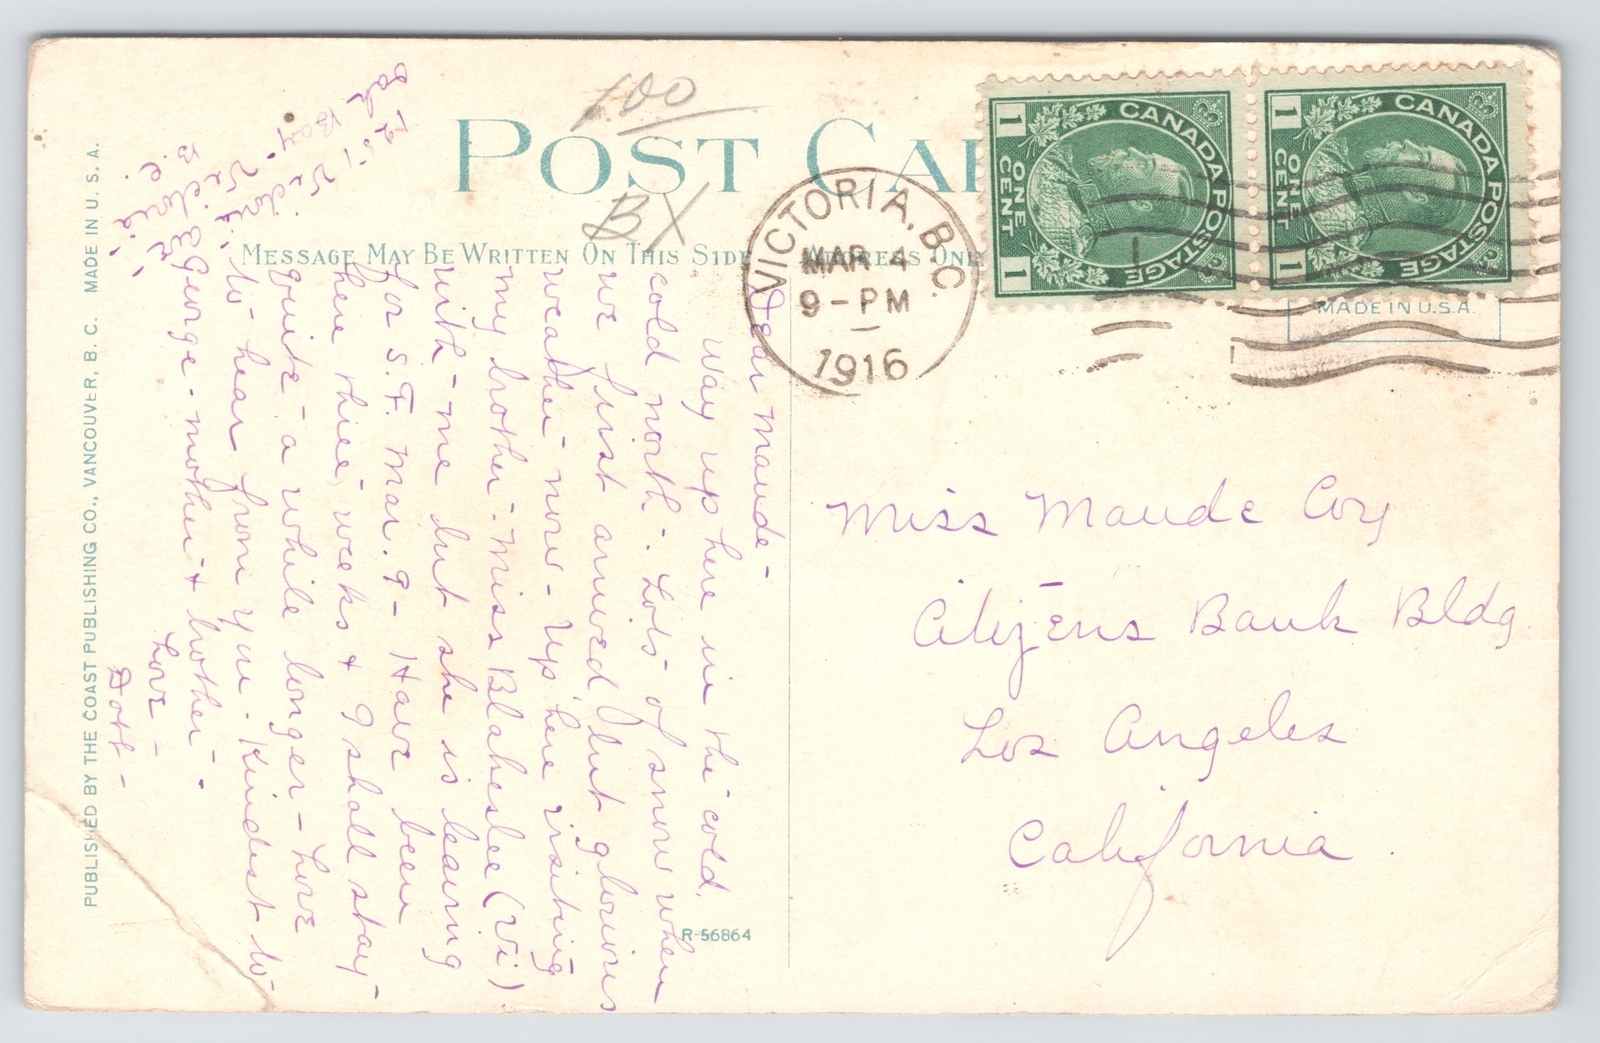 POST CAR
100
BX
MESSAGE MAY BE WRITTEN ON THIS SIDE
ADDRESS ONL
VICTORIA, B.C.
MAR 4
9-PM
1916
CANADA POSTAGE
1 ONE CENT 1
CANADA POSTAGE
1 ONE CENT 1
MADE IN U.S.A.
Dear Maude-
Way up here in the cold,
cold north-. Lots of snow when
we first arrived but glorious
weather now - Up here visiting
my brother-. Miss Blakeslee (Vi)
with-me but she is leaving
for S.F. Mar. 9- Have been
here three weeks & I shall stay-
quite-a while longer-Love
to hear from you. Kindest to-
George-mother & brother-.
Love-
Dott-
Oak Bay
Victoria
B.C.
Miss Maude Coy
Citizens Bank Bldg
Los Angeles
California
R-56864
PUBLISHED BY THE COAST PUBLISHING CO., VANCOUVER, B. C. MADE IN U. S. A.